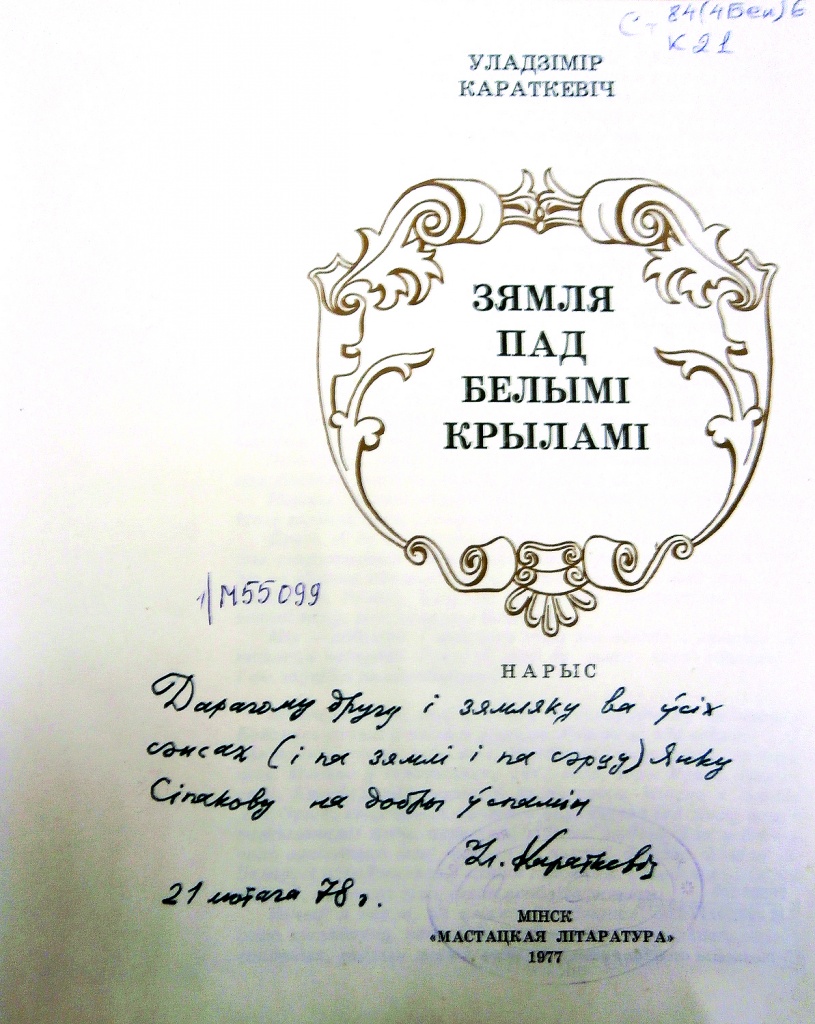 Ст 84(4Беи)6
К 21
УЛАДЗІМІР
КАРАТКЕВІЧ
ЗЯМЛЯ
ПАД
БЕЛЫМІ
КРЫЛАМІ
М55099
НАРЫС
Дарагому другу і зямляку ва ўсіх
сэнсах (і па зямлі і па сэрцу) Янку
Сіпакову на добры ўспамін
Ул. Караткевіч
21 лютага 78 г.
МІНСК
«МАСТАЦКАЯ ЛІТАРАТУРА»
1977